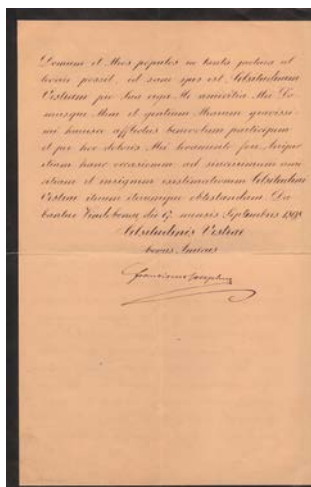 Domum et Meos populos ne tanta jactura ad
levari possit, id sane spes est Celsitudinem
Vestram pro Sua erga Me amicitia Mei Do
musque Meae et gentium Mearum gravissi
mi hausce affectus benevolum participem
et per hoc doloris Mei levamento fore. Arripio
etiam hanc occasionem ad sincerissimum
atiam et insignem existimationem Celsitudini
Vestrae iterum iterumque obtestandam. Da
bantur Vindobonae, die 17 mensis Septembris 1898
Celsitudinis Vestrae
bonus Amicus
Franciscus Josephus